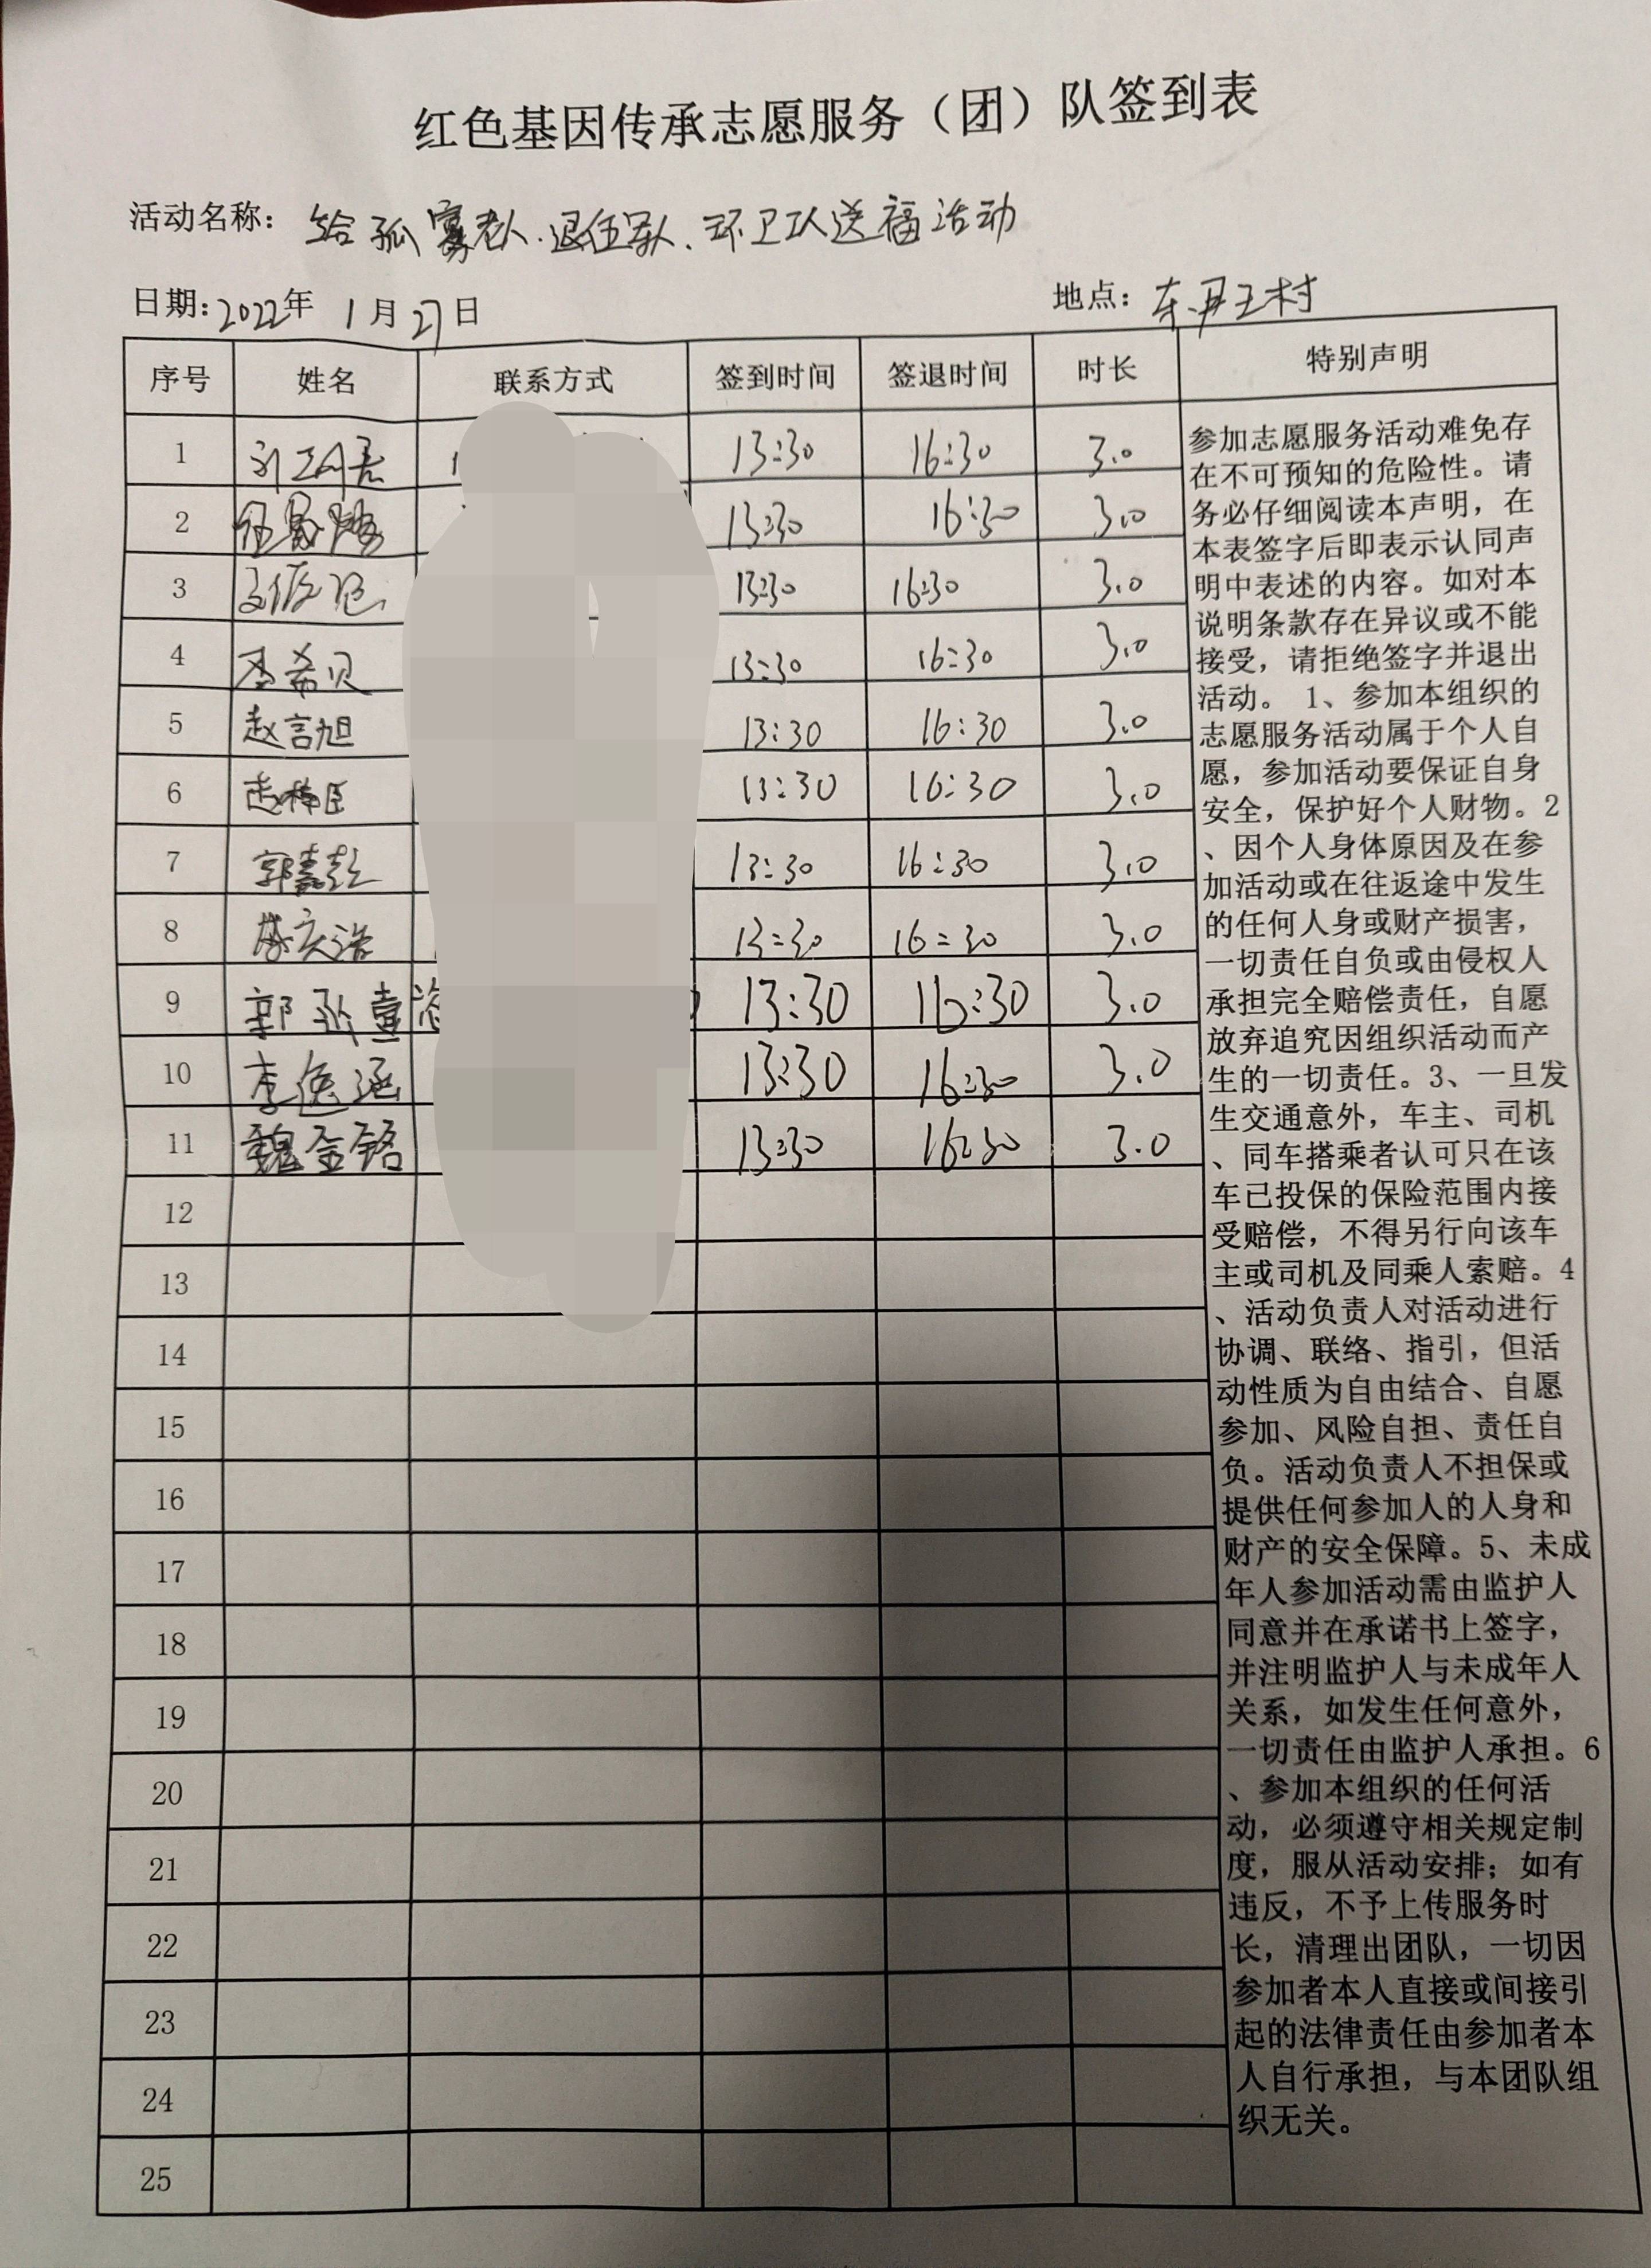 红色基因传承志愿服务（团）队签到表
活动名称： 给孤寡老人.退伍军人.环卫工人送福活动
日期：2022年 1月27日 地点：东尹王村
序号 姓名 联系方式 签到时间 签退时间 时长 特别声明
1 13:30 16:30 3.0
2 13:30 16:30 3.0
3 13:30 16:30 3.0
4 李希贝 13:30 16:30 3.0
5 赵言旭 13:30 16:30 3.0
6 13:30 16:30 3.0
7 郭嘉懿 13:30 16:30 3.0
8 13:30 16:30 3.0
9 郭 13:30 16:30 3.0
10 李逸涵 13:30 16:30 3.0
11 魏金铭 13:30 16:30 3.0
12
13
14
15
16
17
18
19
20
21
22
23
24
25
参加志愿服务活动难免存
在不可预知的危险性。请
务必仔细阅读本声明，在
本表签字后即表示认同声
明中表述的内容。如对本
说明条款存在异议或不能
接受，请拒绝签字并退出
活动。1、参加本组织的
志愿服务活动属于个人自
愿，参加活动要保证自身
安全，保护好个人财物。2
、因个人身体原因及在参
加活动或在往返途中发生
的任何人身或财产损害，
一切责任自负或由侵权人
承担完全赔偿责任，自愿
放弃追究因组织活动而产
生的一切责任。3、一旦发
生交通意外，车主、司机
、同车搭乘者认可只在该
车已投保的保险范围内接
受赔偿，不得另行向该车
主或司机及同乘人索赔。4
、活动负责人对活动进行
协调、联络、指引，但活
动性质为自由结合、自愿
参加、风险自担、责任自
负。活动负责人不担保或
提供任何参加人的人身和
财产的安全保障。5、未成
年人参加活动需由监护人
同意并在承诺书上签字，
并注明监护人与未成年人
关系，如发生任何意外，
一切责任由监护人承担。6
、参加本组织的任何活
动，必须遵守相关规定制
度，服从活动安排；如有
违反，不予上传服务时
长，清理出团队，一切因
参加者本人直接或间接引
起的法律责任由参加者本
人自行承担，与本团队组
织无关。